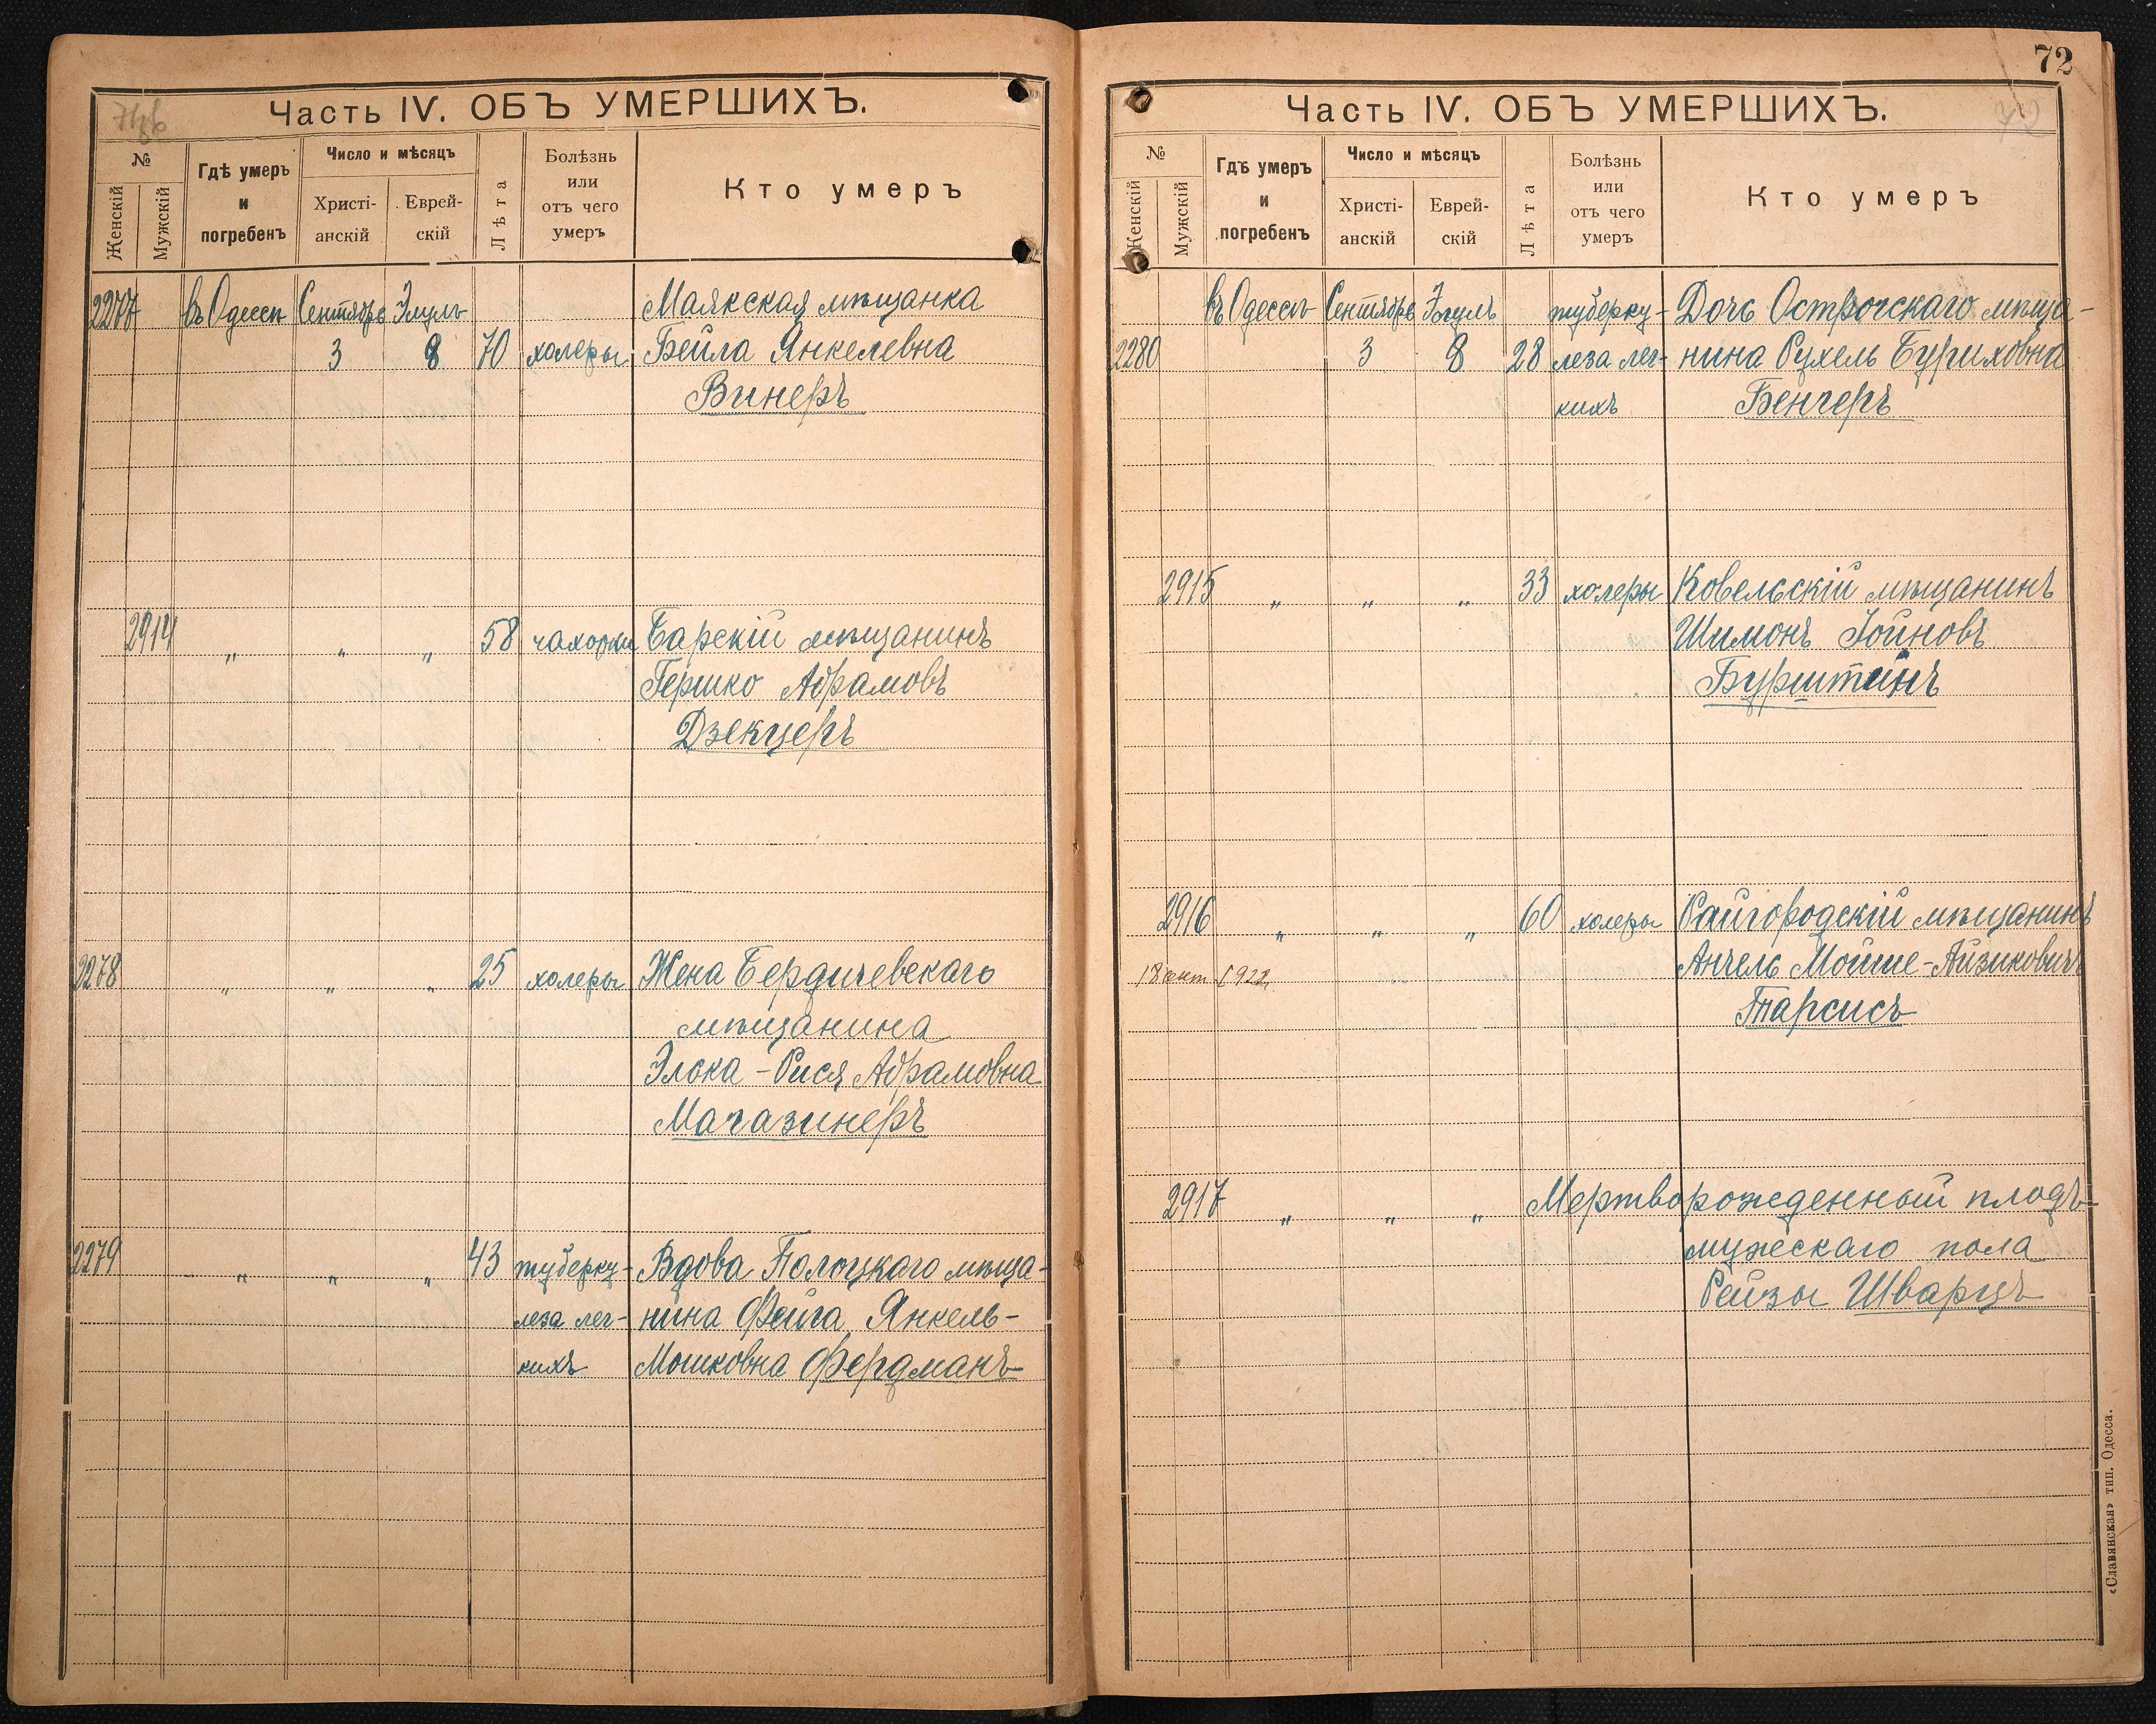 Часть IV. ОБЪ УМЕРШИХЪ.
№
Женскій
Мужскій
Гдѣ умеръ
и
погребенъ
Число и мѣсяцъ
Христі-
анскій
Еврей-
скій
Лѣта
Болѣзнь
или
отъ чего
умеръ
Кто умеръ
2277 въ Одессѣ Сентябрь Элулъ Маякская мѣщанка
3 8 70 холеры Бейла Янкелевна
Винеръ
2914 „ „ „ 58 чахотки Барскій мѣщанинъ
Гершко Абрамовъ
Дзекцеръ
2278 „ „ „ 25 холеры Жена Бердичевскаго
мѣщанина
Элька-Рися Абрамовна
Магазинеръ
2279 „ „ „ 43 туберку- Вдова Полоцкаго мѣща-
леза лег- нина Фейга Янкель-
кихъ Мошковна Фердманъ
72
Часть IV. ОБЪ УМЕРШИХЪ.
72
№
Женскій
Мужскій
Гдѣ умеръ
и
погребенъ
Число и мѣсяцъ
Христі-
анскій
Еврей-
скій
Лѣта
Болѣзнь
или
отъ чего
умеръ
Кто умеръ
въ Одессѣ Сентябрь Элулъ туберку- Дочь Острогскаго мѣща-
2280 3 8 28 леза лег- нина Рухель Буриховна
кихъ Бенгеръ
2915 „ „ „ 33 холеры Ковельскій мѣщанинъ
Шимонъ Іойновъ
Бурштейнъ
2916 „ „ „ 60 холеры Райгородскій мѣщанинъ
18 1922 Анчель Мойше-Айзиковичъ
Тарсисъ
2917 „ „ „ Мертворожденный плодъ
мужескаго пола
Рейзы Шварцъ
«Славянская» тип. Одесса.